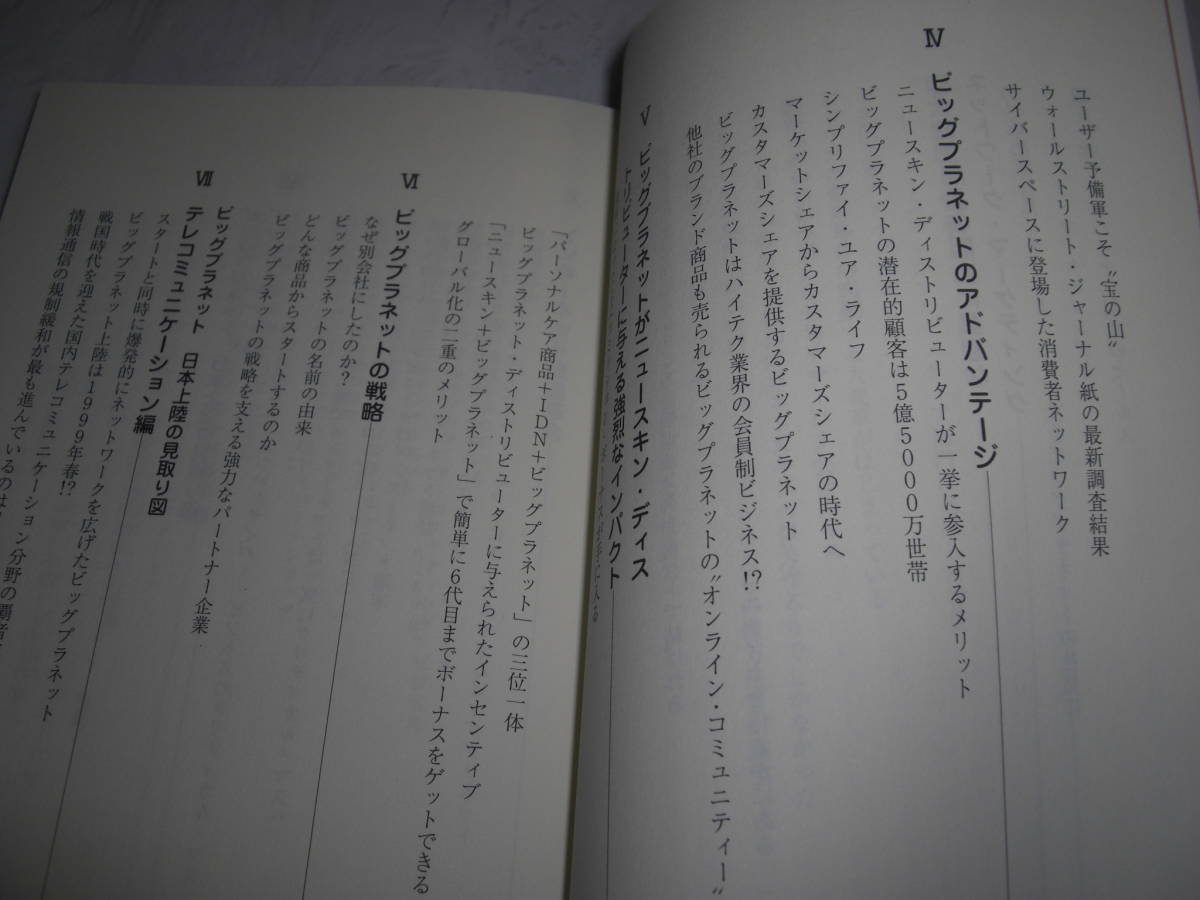 ユーザー予備軍こそ〝宝の山〟
ウォールストリート・ジャーナル紙の最新調査結果
サイバースペースに登場した消費者ネットワーク
Ⅳ ビッグプラネットのアドバンテージ
ニュースキン・ディストリビューターが一挙に参入するメリット
ビッグプラネットの潜在的顧客は5億5000万世帯
シンプリファイ・ユア・ライフ
マーケットシェアからカスタマーズシェアの時代へ
カスタマーズシェアを提供するビッグプラネット
ビッグプラネットはハイテク業界の会員制ビジネス!?
他社のブランド商品も売られるビッグプラネットの〝オンライン・コミュニティー〟
Ⅴ ビッグプラネットがニュースキン・ディス
トリビューターに与える強烈なインパクト
「パーソナルケア商品+IDN+ビッグプラネット」の三位一体
ビッグプラネット・ディストリビューターに与えられたインセンティブ
「ニュースキン+ビッグプラネット」で簡単に6代目までボーナスをゲットできる
グローバル化の二重のメリット
Ⅵ ビッグプラネットの戦略
なぜ別会社にしたのか?
ビッグプラネットの名前の由来
どんな商品からスタートするのか
ビッグプラネットの戦略を支える強力なパートナー企業
Ⅶ ビッグプラネット 日本上陸の見取り図
テレコミュニケーション編
スタートと同時に爆発的にネットワークを広げたビッグプラネット
ビッグプラネット上陸は1999年春!?
戦国時代を迎えた国内テレコミュニケーション分野の覇者
情報通信の規制緩和が最も進んでいるのは